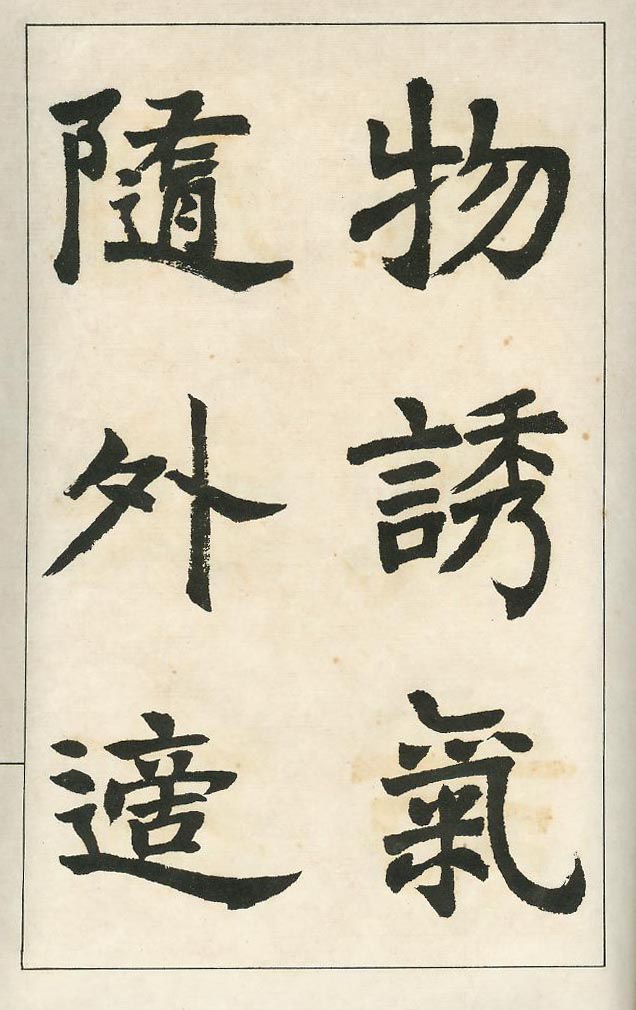 物誘氣
隨外適